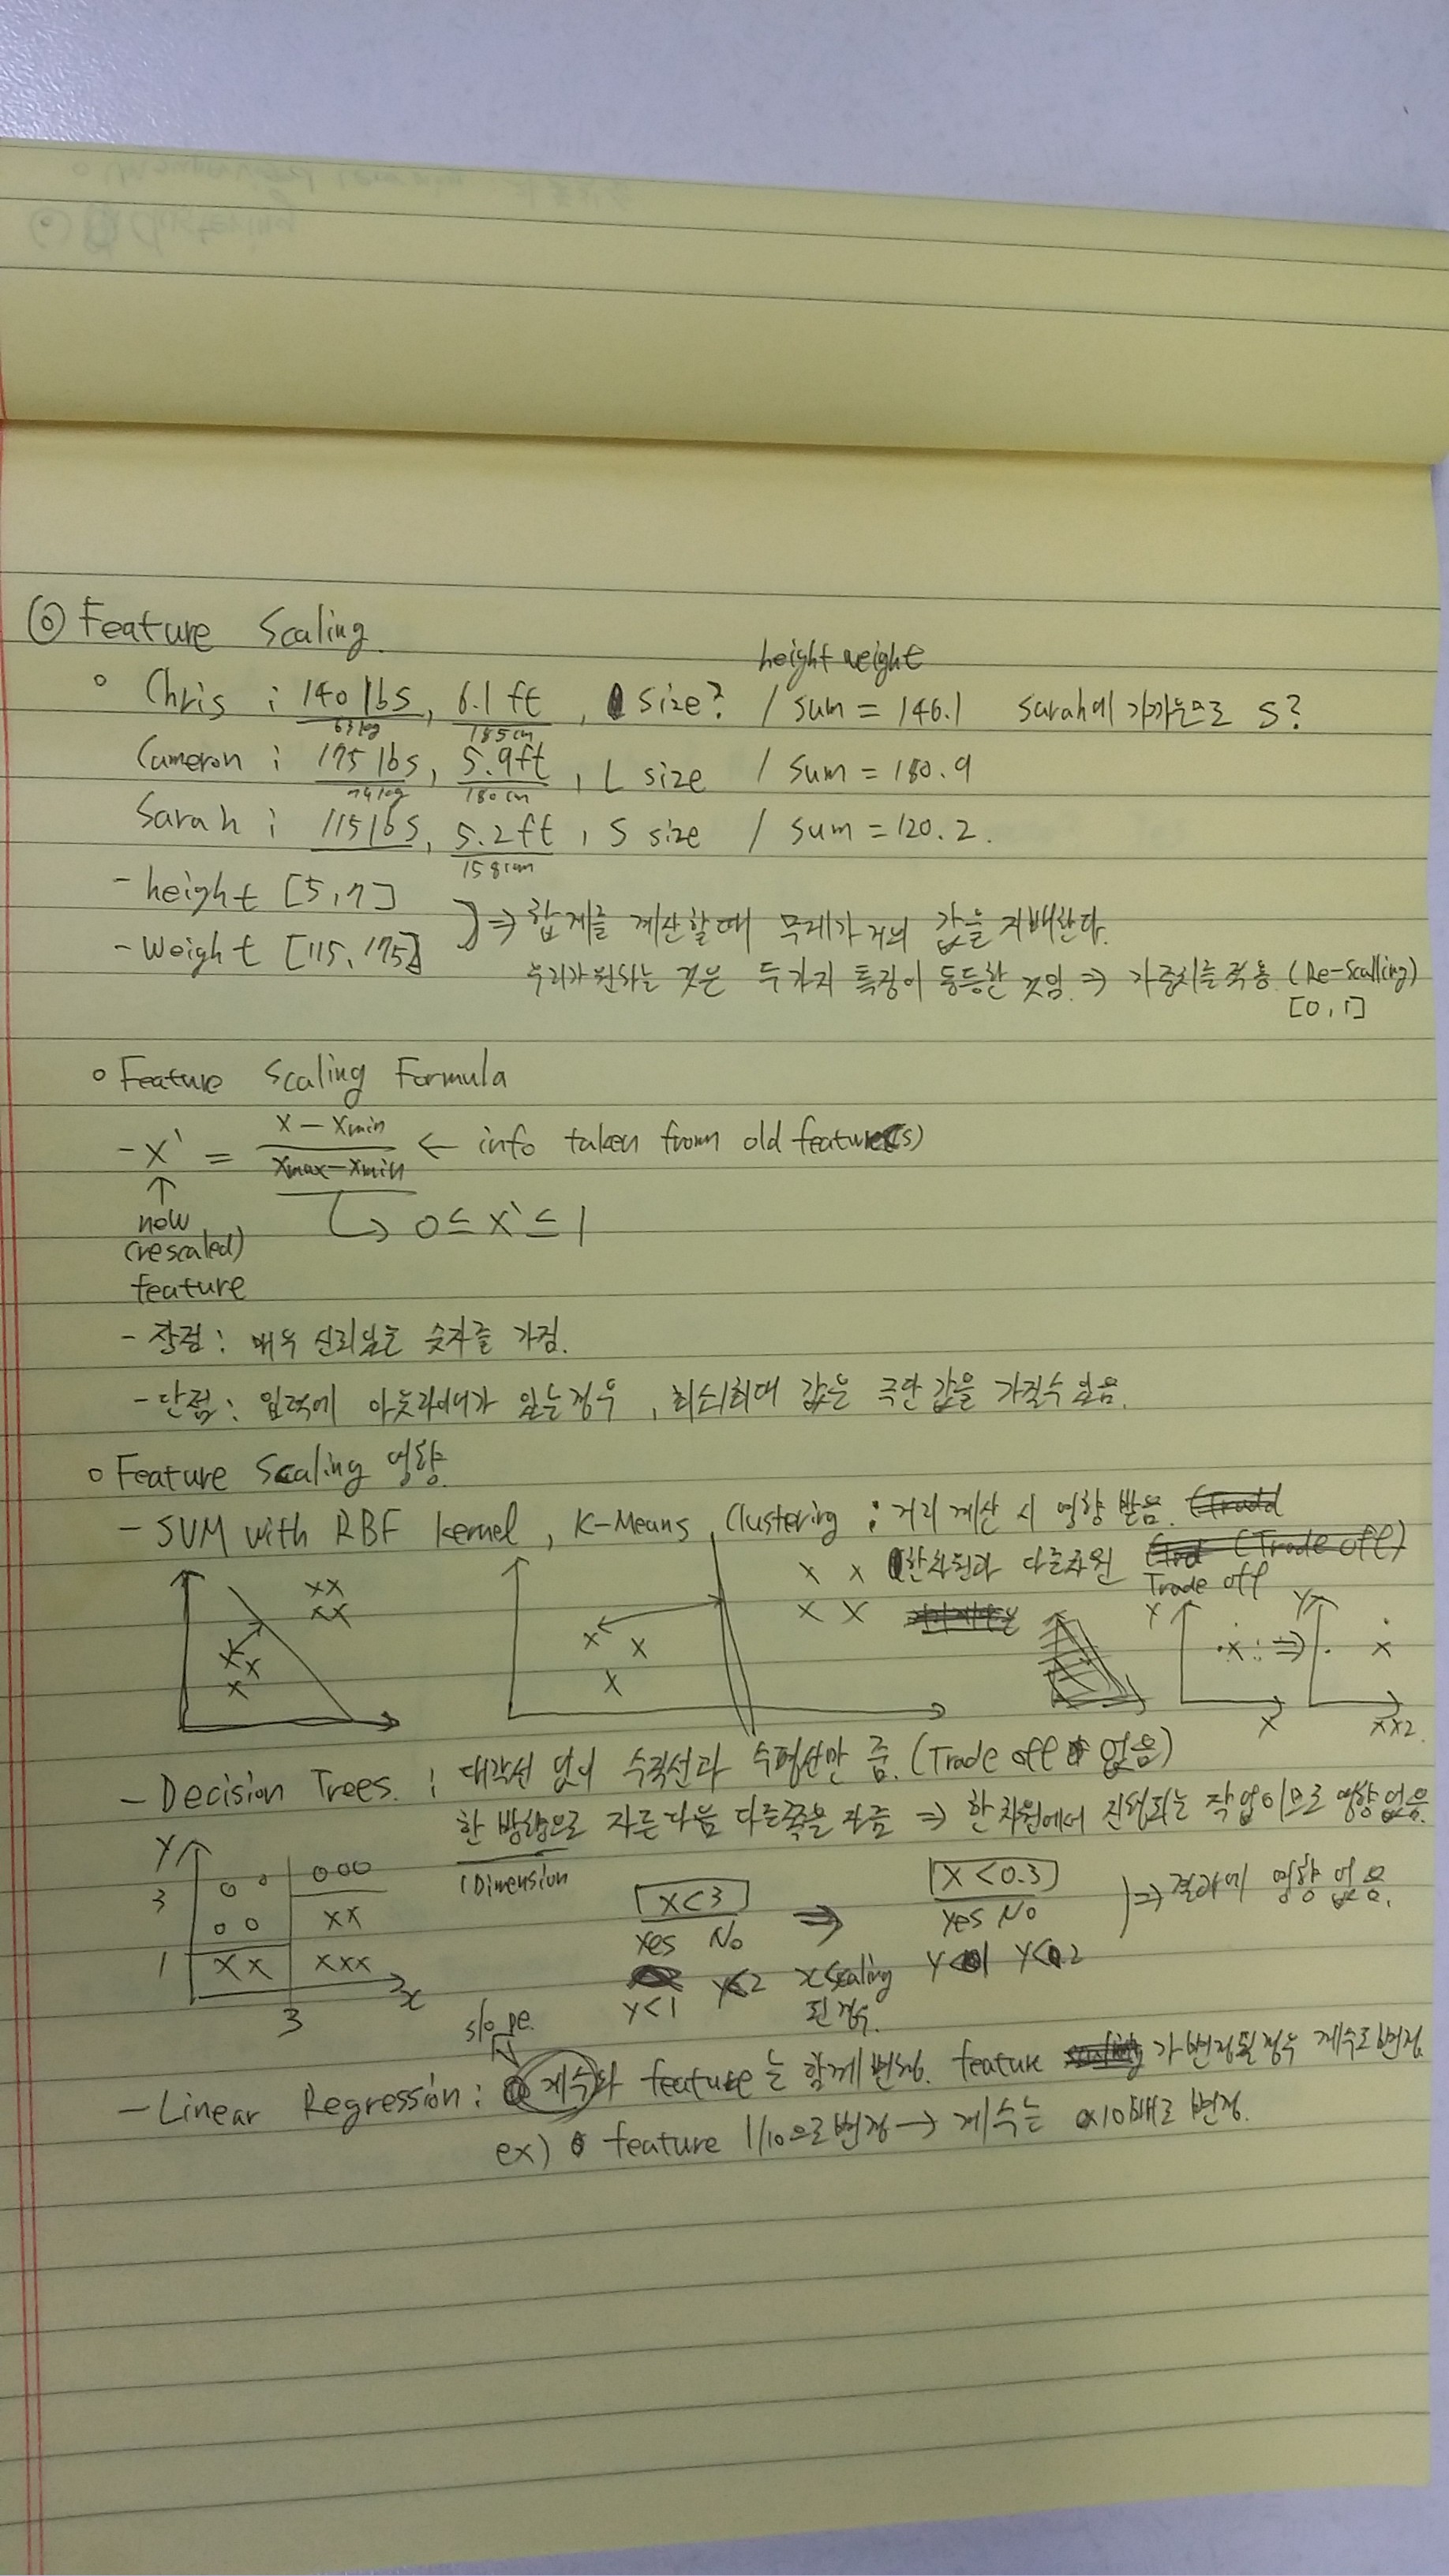 ⑥ Feature Scaling.
height weight
∘ Chris : 140 lbs, 6.1 ft, size? / sum = 146.1 Sarah에 가까운므로 S?
63kg 185cm
Cameron : 175 lbs, 5.9ft, L size / sum = 180.9
74kg 180cm
Sarah : 115 lbs, 5.2ft, S size / sum = 120.2.
158cm
- height [5,7]
- weight [115,175]
⇒ 합계를 계산할때 무게가 거의 값을 지배한다.
우리가 원하는 것은 두가지 특징이 동등한 것임. ⇒ 가중치를 적용 (Re-scalling)
[0,1]
∘ Feature Scaling Formula
x - xmin
- x' = ← info taken from old feature(s)
xmax-xmin
↑
new ↳ 0 ≤ x' ≤ 1
(rescaled)
feature
- 장점 : 매우 신뢰있는 숫자를 가짐.
- 단점 : 입력에 아웃라이어가 있는경우, 최소/최대 값은 극단 값을 가질수 있음.
∘ Feature Scaling 영향.
- SVM with RBF kernel, K-Means Clustering : 거리 계산 시 영향 받음.
한차원과 다른차원 Trade off
Y Y
X X×2.
- Decision Trees. : 대각선 없이 수직선과 수평선만 줌. (Trade off 없음)
한 방향으로 자른다음 다른쪽을 자름 ⇒ 한 차원에서 진행되는 작업이므로 영향없음.
(Dimension
Y
3
1
3
x
X<3 ⇒ X<0.3 ⇒ 결과에 영향 없음.
Yes No Yes No
Y<1 Y<2 x scaling 된 경우. Y<1 Y<2
slope.
- Linear Regression : 계수와 feature는 함께 변경. feature 가 변경될경우 계수도 변경
ex) feature 1/10으로 변경 → 계수는 ×10배로 변경.